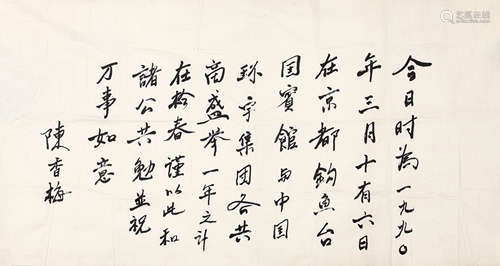 今日时為一九九〇
年三月十有六日
在京都釣魚台
国賓館与中国
宇集团各共
高盛举一年之计
在扵春謹以此和
諸公共勉並祝
万事如意
陳香梅